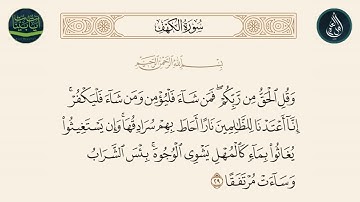 سُورَةُ الكَهْفِ
بِسْمِ اللَّهِ الرَّحْمَٰنِ الرَّحِيمِ
وَقُلِ ٱلْحَقُّ مِن رَّبِّكُمْ ۖ فَمَن شَآءَ فَلْيُؤْمِن وَمَن شَآءَ فَلْيَكْفُرْ ۚ
إِنَّآ أَعْتَدْنَا لِلظَّٰلِمِينَ نَارًا أَحَاطَ بِهِمْ سُرَادِقُهَا ۚ وَإِن يَسْتَغِيثُوا۟
يُغَاثُوا۟ بِمَآءٍ كَٱلْمُهْلِ يَشْوِى ٱلْوُجُوهَ ۚ بِئْسَ ٱلشَّرَابُ
وَسَآءَتْ مُرْتَفَقًا ٢٩